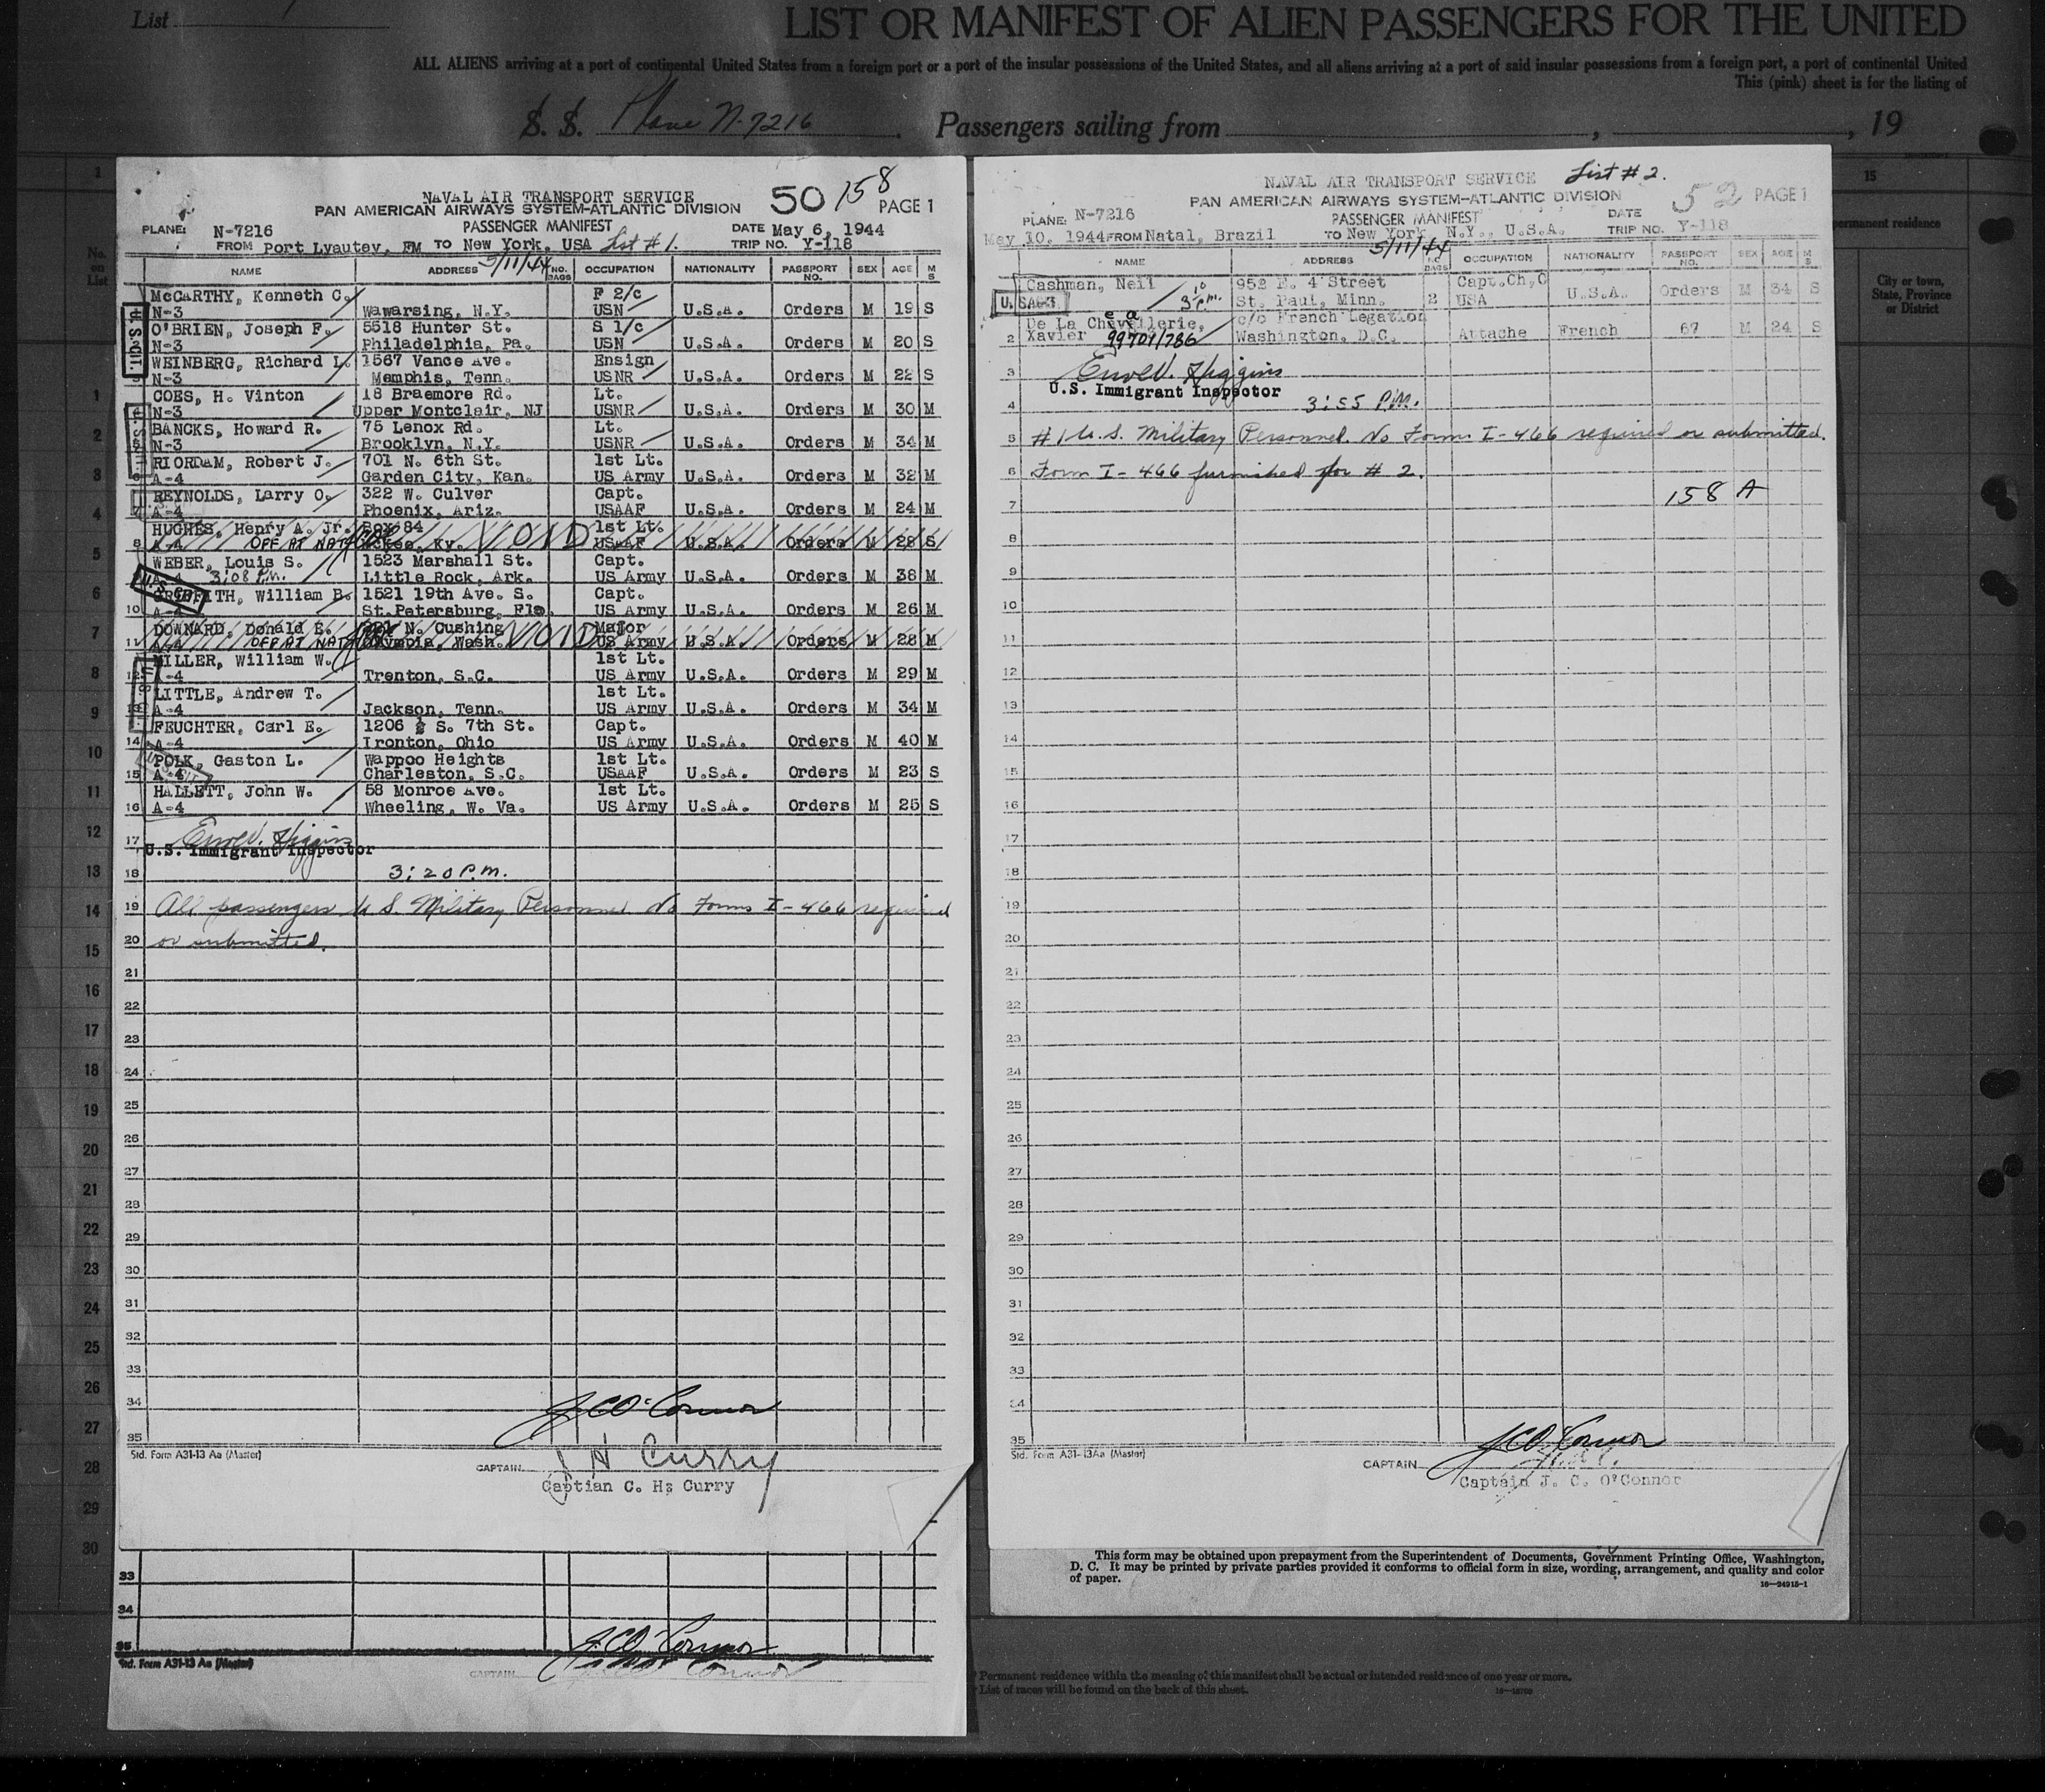 List
LIST OR MANIFEST OF ALIEN PASSENGERS FOR THE UNITED
ALL ALIENS arriving at a port of continental United States from a foreign port or a port of the insular possessions of the United States, and all aliens arriving at a port of said insular possessions from a foreign port, a port of continental United
This (pink) sheet is for the listing of
S. S. Plane N-7216 . Passengers sailing from , , 19
NAVAL AIR TRANSPORT SERVICE 50 158
PAN AMERICAN AIRWAYS SYSTEM-ATLANTIC DIVISION PAGE 1
PLANE: N-7216 PASSENGER MANIFEST DATE May 6, 1944
FROM Port Lyautey, FM TO New York, USA List # 1. TRIP NO. Y-118
5/11/44
NAME ADDRESS NO. BAGS OCCUPATION NATIONALITY PASSPORT NO. SEX AGE M S
McCARTHY, Kenneth C. F 2/c
N-3 Wawarsing, N.Y. USN U.S.A. Orders M 19 S
O'BRIEN, Joseph F. 5518 Hunter St. S 1/c
N-3 Philadelphia, Pa. USN U.S.A. Orders M 20 S
WEINBERG, Richard L. 1567 Vance Ave. Ensign
N-3 Memphis, Tenn. USNR U.S.A. Orders M 22 S
COES, H. Vinton 18 Braemore Rd. Lt.
N-3 Upper Montclair, NJ USNR U.S.A. Orders M 30 M
BANCKS, Howard R. 75 Lenox Rd. Lt.
N-3 Brooklyn, N.Y. USNR U.S.A. Orders M 34 M
RIORDAM, Robert J. 701 N. 6th St. 1st Lt.
6 A-4 Garden City, Kan. US Army U.S.A. Orders M 32 M
REYNOLDS, Larry O. 322 W. Culver Capt.
7 A-4 Phoenix, Ariz. USAAF U.S.A. Orders M 24 M
HUGHES, Henry A. Jr. Box 84 1st Lt.
8 A-4 OFF AT NATAL McKee, Ky. VOID USAAF U.S.A. Orders M 28 S
WEBER, Louis S. 1523 Marshall St. Capt.
A-4 3:08 P.M. Little Rock, Ark. US Army U.S.A. Orders M 38 M
GRIFFITH, William B. 1521 19th Ave. S. Capt.
10 A-4 St. Petersburg, Fla. US Army U.S.A. Orders M 26 M
DOWNARD, Donald E. N. Cushing VOID Major
11 A-4 OFF AT NATAL Olympia, Wash. US Army U.S.A. Orders M 28 M
MILLER, William W. 1st Lt.
12 A-4 Trenton, S.C. US Army U.S.A. Orders M 29 M
LITTLE, Andrew T. 1st Lt.
13 A-4 Jackson, Tenn. US Army U.S.A. Orders M 34 M
FEUCHTER, Carl E. 1206 ½ S. 7th St. Capt.
14 A-4 Ironton, Ohio US Army U.S.A. Orders M 40 M
POLK, Gaston L. Wappoo Heights 1st Lt.
15 A-4 Charleston, S.C. USAAF U.S.A. Orders M 23 S
HALLETT, John W. 58 Monroe Ave. 1st Lt.
16 A-4 Wheeling, W. Va. US Army U.S.A. Orders M 25 S
17 Higgins
U.S. Immigrant Inspector
18 3:20 P.M.
19 All passengers U.S. Military Personnel No Forms I-466 required
20 or submitted.
21
22
23
24
25
26
27
28
29
30
31
32
33
34 J C O'Connor
35
Std. Form A31-13 Aa (Master)
CAPTAIN H Curry
Captian C. H. Curry
33
34
35 J C O'Connor
Std. Form A31-13 Aa (Master)
CAPTAIN
List # 2.
NAVAL AIR TRANSPORT SERVICE
PAN AMERICAN AIRWAYS SYSTEM-ATLANTIC DIVISION 52 PAGE 1
PLANE: N-7216 PASSENGER MANIFEST DATE
May 10, 1944 FROM Natal, Brazil TO New York, N.Y., U.S.A. TRIP NO. Y-118
5/11/44
NAME ADDRESS NO. BAGS OCCUPATION NATIONALITY PASSPORT NO. SEX AGE M S
Cashman, Neil 952 E. 4 Street Capt.Ch,C
3 10 P.M. St. Paul, Minn. 2 USA U.S.A. Orders M 34 S
De La Chevallerie, c/o French Legation
2 Xavier 99701/786 Washington, D.C. Attache French 67 M 24 S
3 Higgins
U.S. Immigrant Inspector
4 3:55 P.M.
5 #1 U.S. Military Personnel. No Forms I-466 required or submitted.
6 Form I-466 furnished for # 2.
7 158 A
8
9
10
11
12
13
14
15
16
17
18
19
20
21
22
23
24
25
26
27
28
29
30
31
32
33
34
35 J C O'Connor
Std. Form A31-13Aa (Master)
CAPTAIN
Captain J. C. O'Connor
This form may be obtained upon prepayment from the Superintendent of Documents, Government Printing Office, Washington,
D. C. It may be printed by private parties provided it conforms to official form in size, wording, arrangement, and quality and color
of paper.
16—24915-1
Permanent residence within the meaning of this manifest shall be actual or intended residence of one year or more.
List of races will be found on the back of this sheet.
1
No. on List
1
2
3
4
5
6
7
8
9
10
11
12
13
14
15
16
17
18
19
20
21
22
23
24
25
26
27
28
29
30
15
permanent residence
City or town, State, Province or District